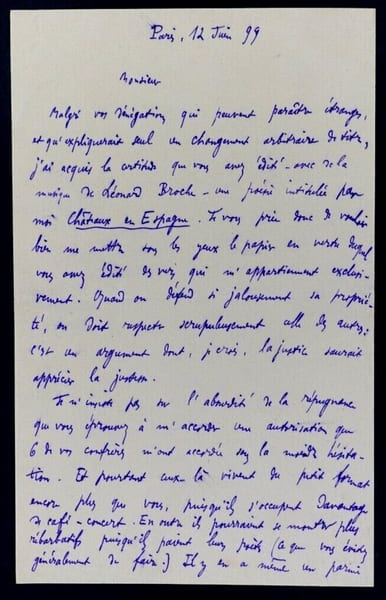 Paris, 12 Juin 99
Monsieur
Malgré vos dénégations qui peuvent paraître étranges,
et qu'expliquerait seul un changement arbitraire de titre,
j'ai acquis la certitude que vous avez édité - avec de la
musique de Léonard Broche - une poésie intitulée par
moi Châteaux en Espagne. Je vous prie donc de vouloir
bien me mettre sous les yeux le papier en vertu duquel
vous avez édité des vers qui m'appartiennent exclusi-
vement. Quand on défend si jalousement sa proprié-
té, on doit respecter scrupuleusement celle des autres :
c'est un argument dont, je crois, la justice saurait
apprécier la justesse.
Je n'insiste pas sur l'absurdité de la répugnance
que vous éprouvez à m'accorder une autorisation que
6 de vos confrères m'ont accordée sans la moindre hésita-
tion. Et pourtant ceux là vivent du petit format
encore plus que vous, puisqu'ils s'occupent davantage
de café-concert. En outre ils pourraient se montrer plus
rébarbatifs puisqu'ils paient leurs poètes (ce que vous évitez
généralement de faire.) Il y en a même un parmi